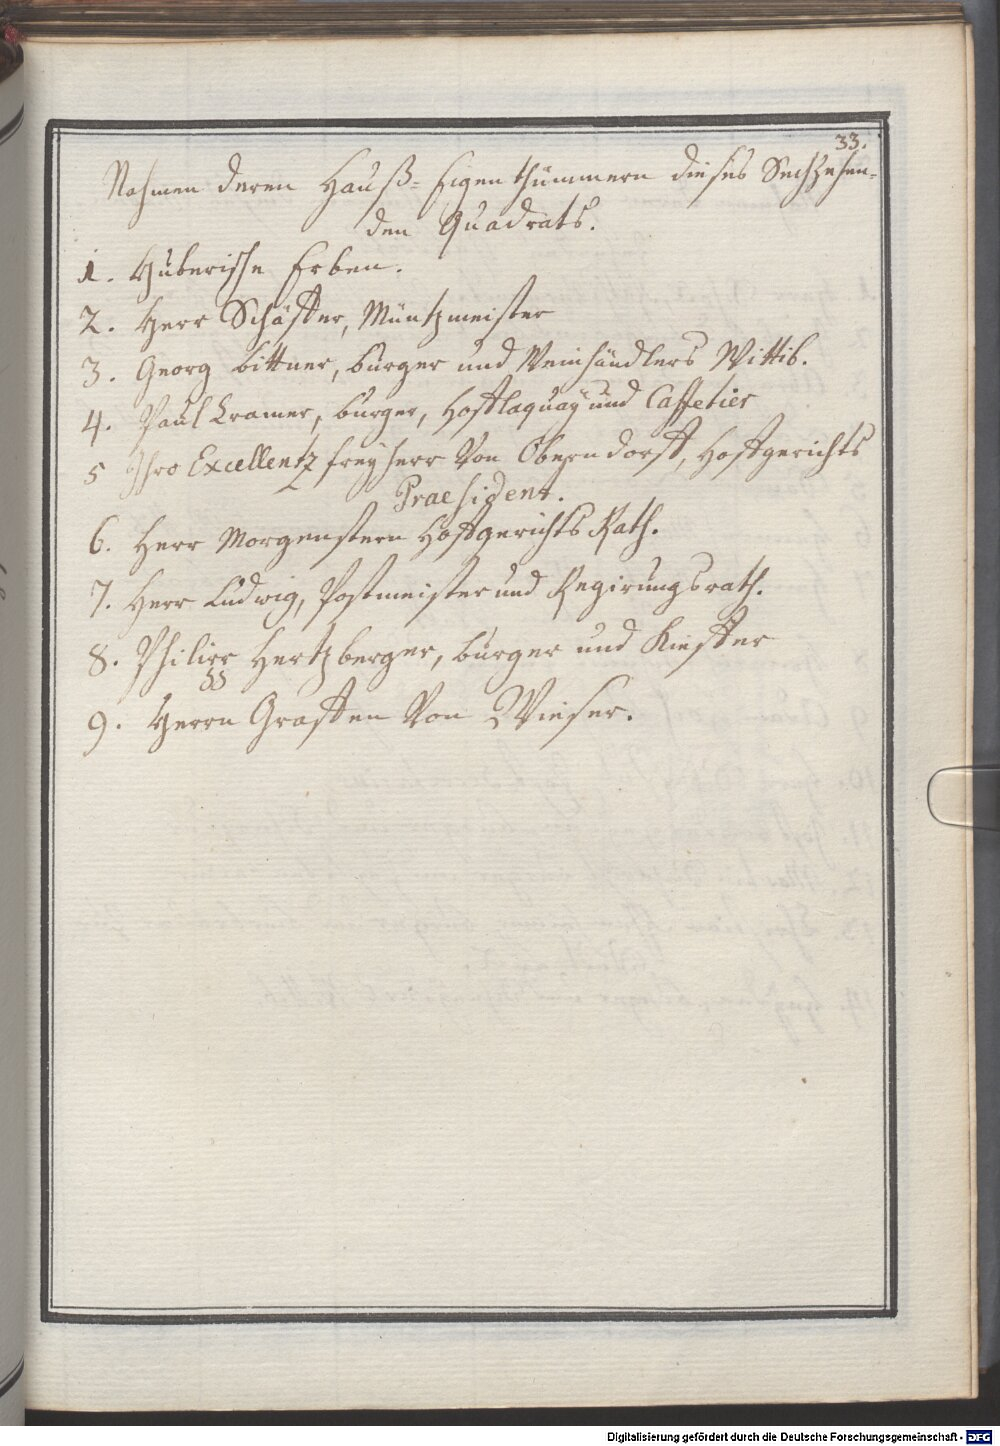 33.
Nahmen deren Hauß=Eigenthümmern dieses Sechzehen=
den Quadrats.
1. Huberische Erben.
2. Herr Schäffer, Müntzmeister
3. Georg bittner, bürger und Weinhändlers Wittib.
4. Paul Kramer, bürger, Hofflaquaÿ und Caffetier
5 Ihro Excellentz freÿherr Von Oberndorff, Hoffgerichts
Praesident.
6. Herr Morgenstern Hoffgerichts Rath.
7. Herr Ludwig, Postmeister und Regirungsrath.
8. Philipp Hertzberger, bürger und Kieffer
9. Herrn Graffen Von Wieser.
Digitalisierung gefördert durch die Deutsche Forschungsgemeinschaft - DFG